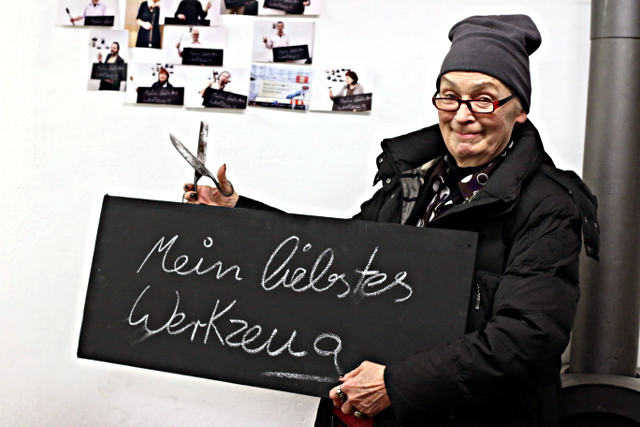 Mein liebstes
Werkzeug